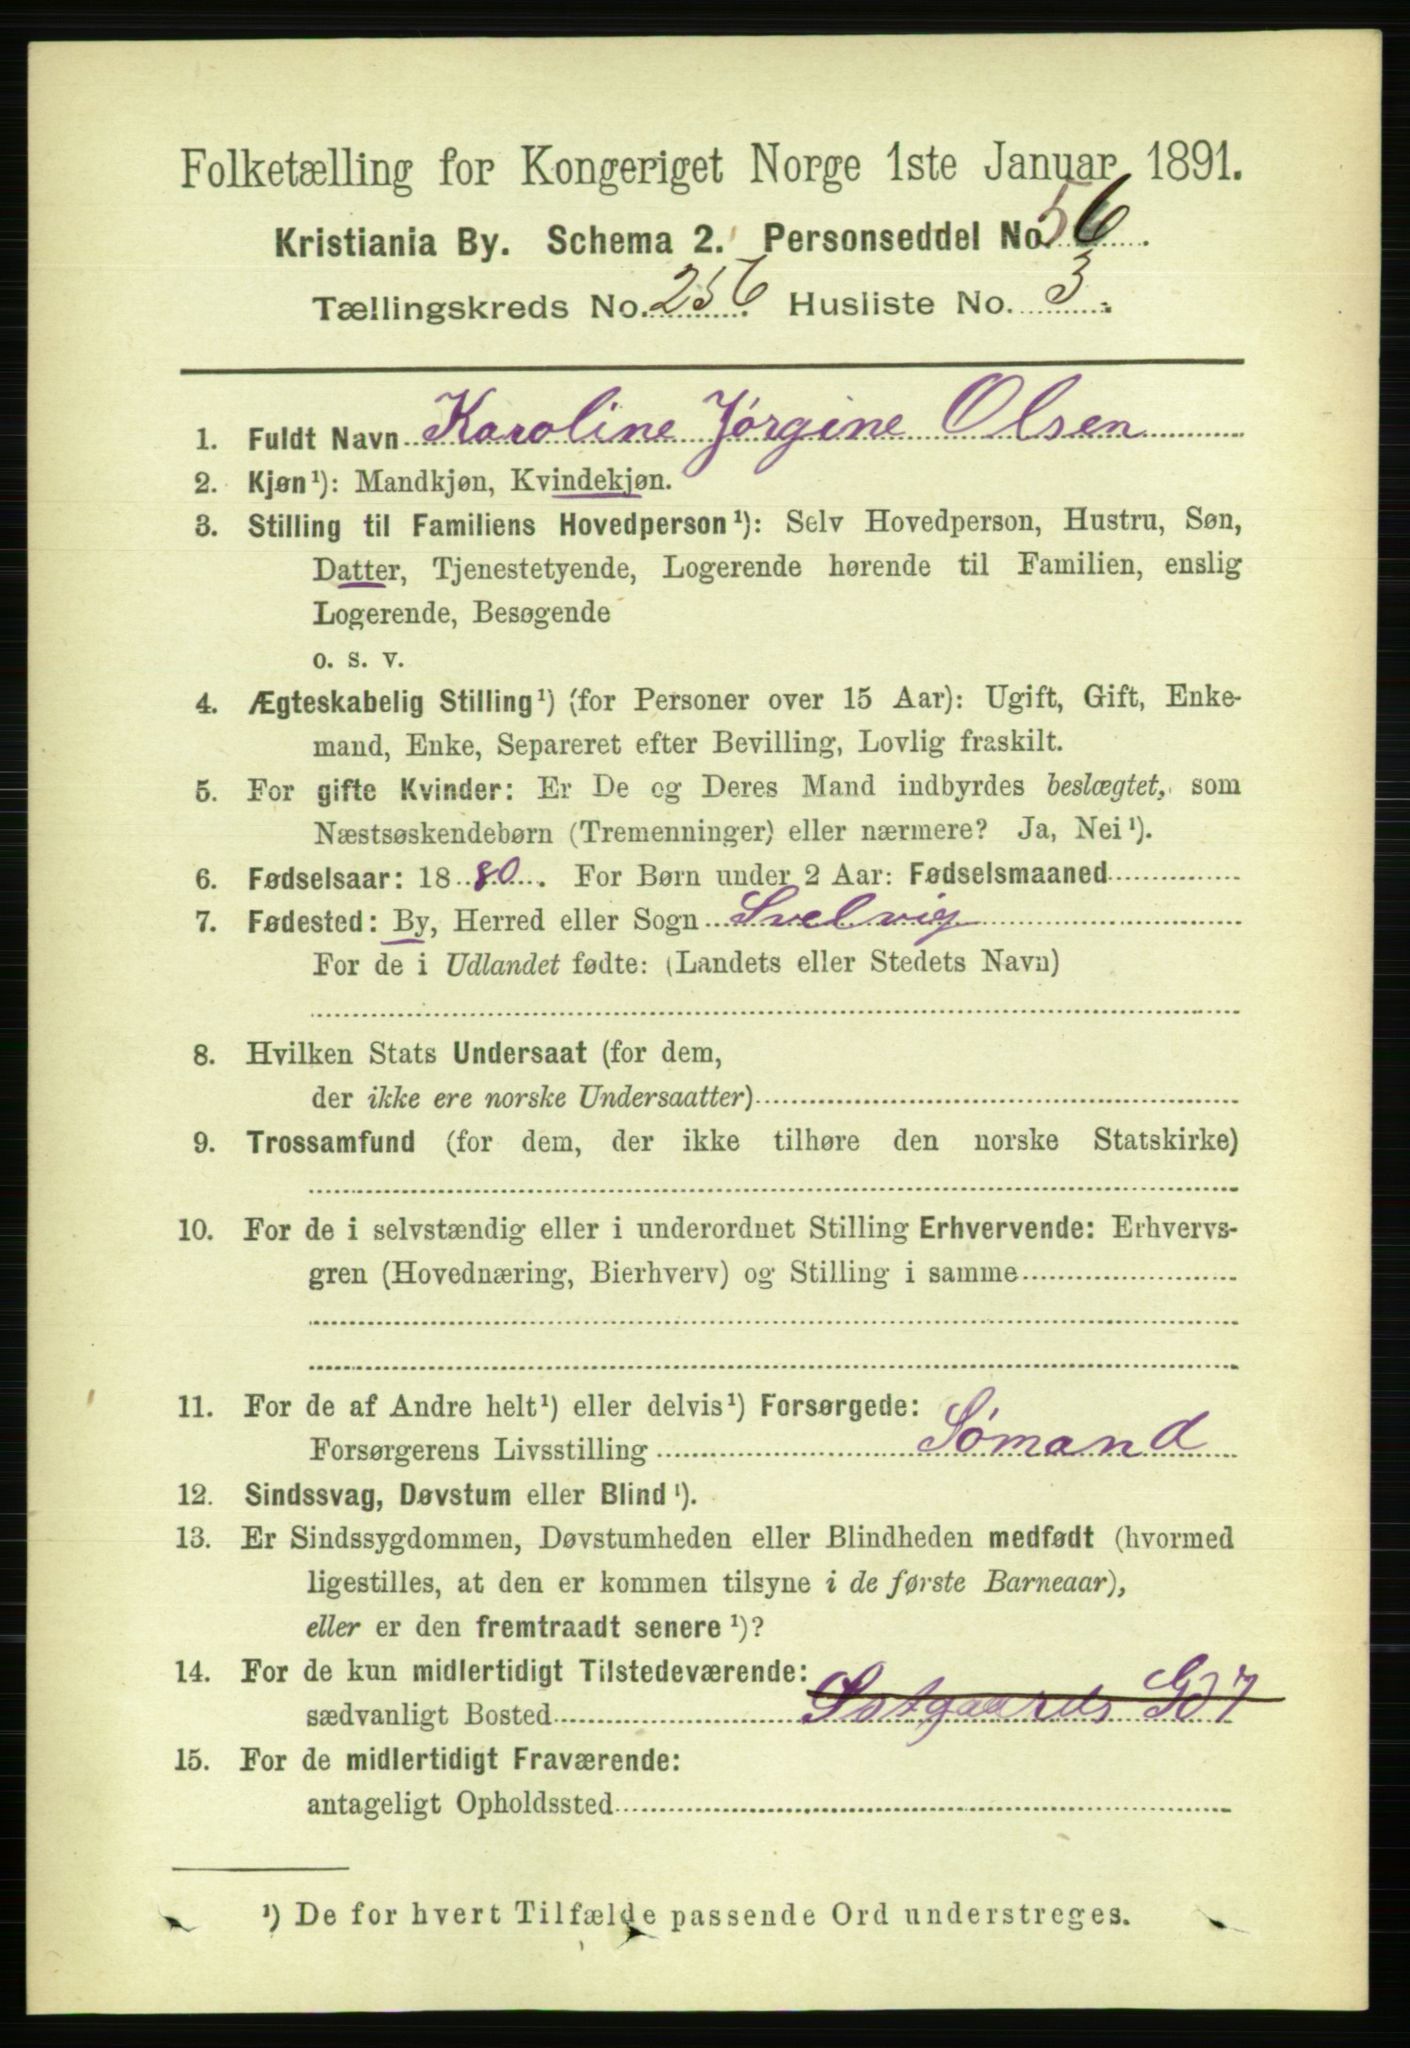 Folketælling for Kongeriget Norge 1ste Januar 1891.
Kristiania By. Schema 2. Personseddel No. 56.
Tællingskreds No. 256. Husliste No. 3.
1. Fuldt Navn Karoline Jørgine Olsen
2. Kjøn¹): Mandkjøn, Kvindekjøn.
3. Stilling til Familiens Hovedperson¹): Selv Hovedperson, Hustru, Søn,
Datter, Tjenestetyende, Logerende hørende til Familien, enslig
Logerende, Besøgende
o. s. v.
4. Ægteskabelig Stilling¹) (for Personer over 15 Aar): Ugift, Gift, Enke-
mand, Enke, Separeret efter Bevilling, Lovlig fraskilt.
5. For gifte Kvinder: Er De og Deres Mand indbyrdes beslægtet, som
Næstsøskendebørn (Tremenninger) eller nærmere? Ja, Nei¹).
6. Fødselsaar: 1880. For Børn under 2 Aar: Fødselsmaaned
7. Fødested: By, Herred eller Sogn Svelvig
For de i Udlandet fødte: (Landets eller Stedets Navn)
8. Hvilken Stats Undersaat (for dem,
der ikke ere norske Undersaatter)
9. Trossamfund (for dem, der ikke tilhøre den norske Statskirke)
10. For de i selvstændig eller i underordnet Stilling Erhvervende: Erhvervs-
gren (Hovednæring, Bierhverv) og Stilling i samme
11. For de af Andre helt¹) eller delvis¹) Forsørgede:
Forsørgerens Livsstilling Sømand
12. Sindssvag, Døvstum eller Blind¹).
13. Er Sindssygdommen, Døvstumheden eller Blindheden medfødt (hvormed
ligestilles, at den er kommen tilsyne i de første Barneaar),
eller er den fremtraadt senere¹)?
14. For de kun midlertidigt Tilstedeværende:
sædvanligt Bosted
15. For de midlertidigt Fraværende:
antageligt Opholdssted
¹) De for hvert Tilfælde passende Ord understreges.